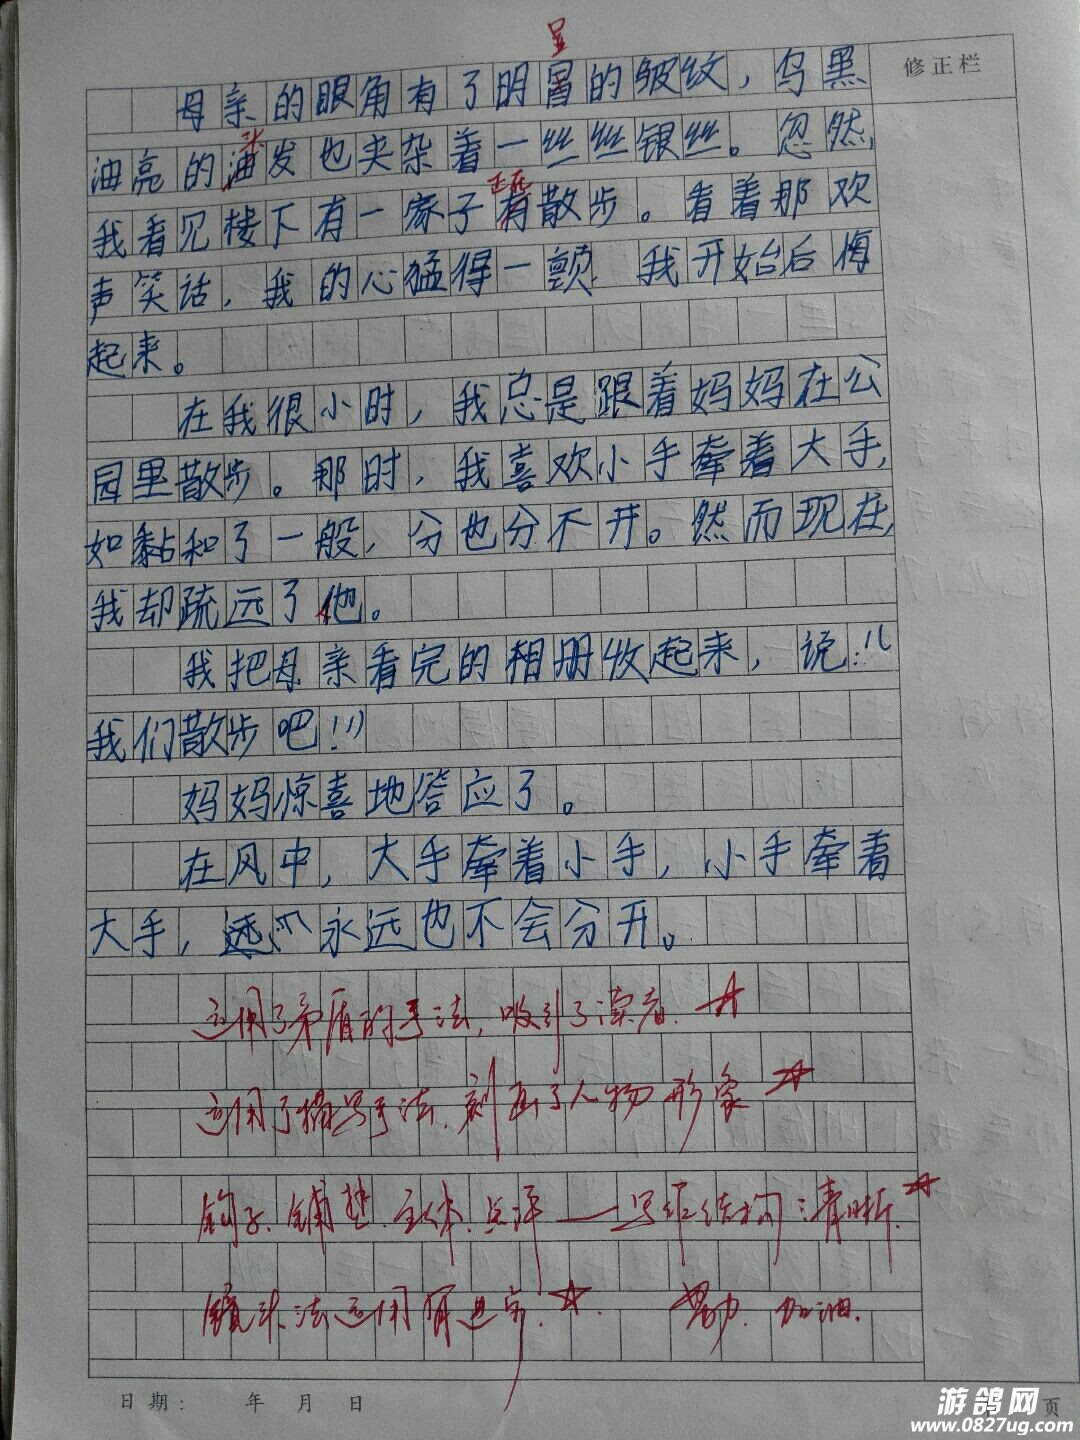 显
修正栏
母亲的眼角有了明冒的皱纹，乌黑
头
油亮的油发也夹杂着一丝丝银丝。忽然，
正在
我看见楼下有一家子有散步。看着那欢
声笑话，我的心猛得一颤 我开始后悔
起来。
在我很小时，我总是跟着妈妈在公
园里散步。那时，我喜欢小手牵着大手，
如黏和了一般，分也分不开。然而现在，
我却疏远了他。
我把母亲看完的相册收起来，说：“
我们散步吧！”
妈妈惊喜地答应了。
在风中，大手牵着小手，小手牵着
大手，永远也不会分开。
运用了矛盾的手法，吸引了读者。☆
运用了描写手法，刻画了人物形象☆
钩子、铺垫、主体、点评——写作结构清晰。☆
镜头法运用有进步。☆ 努力，加油。
日期： 年 月 日
页
游鸽网
www.0827ug.com